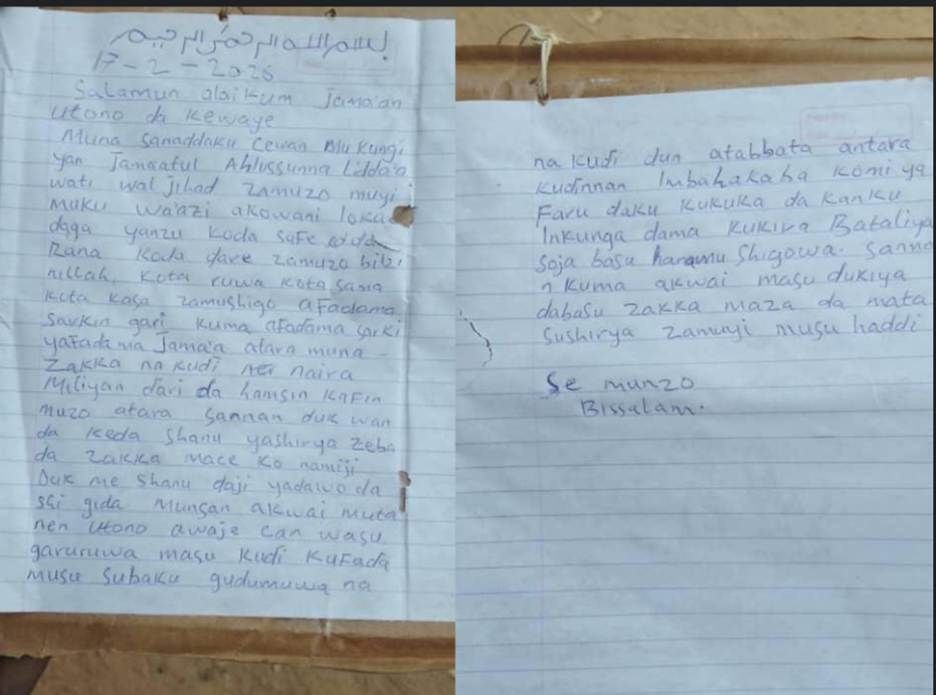 بسم الله الرحمن الرحيم
17-2-2026
Salamun alaikum Jama'an
utono da kewaye
Muna sanaddaku cewan Mu kungi
yan Jamaatul Ahlussunna Lidda'a
wati wal Jihad zamuzo muyi
muku wa'azi akowani loka
daga yanzu koda safe
Rana koda dare zamuzo bilzi
nillah, kota ruwa kota sama
kota kasa zamushigo afadama
sarkin gari kuma afadama sarki
yafadama Jama'a atara muna
zakka na kudi naira
Miliyan dari da hamsin kafin
muzo atara sannan duk wan
da keda shanu yashirya zeba
da zakka mace ko namiji
Duk me shanu daji yadawo da
su gida munsan akwai muta
nen utono awaje can wasu
garuruwa masu kudi kufada
musu subaku gudumuwa na
na kudi dun atabbata antara
kudinnan Imbahakaba komi ya
faru daku kukuka da kanku
Inkunga dama kukira Bataliya
soja basu hanamu shigowa. sanna
n kuma akwai masu dukiya
dabasu zakka maza da mata
sushirya zamuyi musu haddi
se munzo
Bissalam.